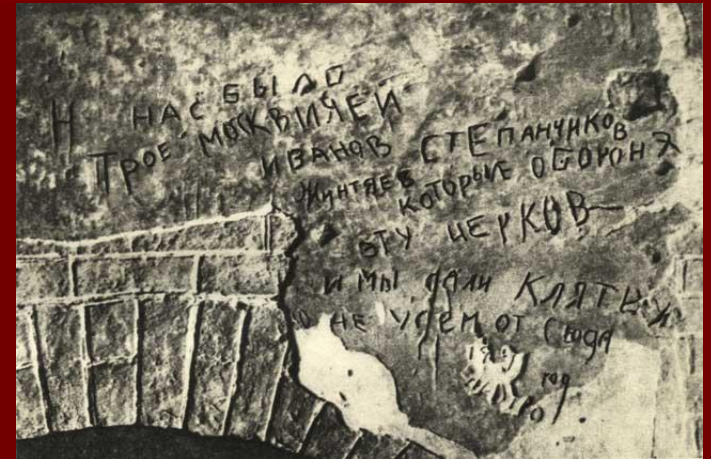 Н НАС БЫЛО
ТРОЕ МОСКВИЧЕЙ
ИВАНОВ СТЕПАНЧИКОВ
Жунтяев КОТОРЫЕ ОБОРОНЯ
ЭТУ ЦЕРКОВ
И МЫ ДАЛИ КЛЯТВУ
НЕ УДЕМ ОТ СЮДА
год